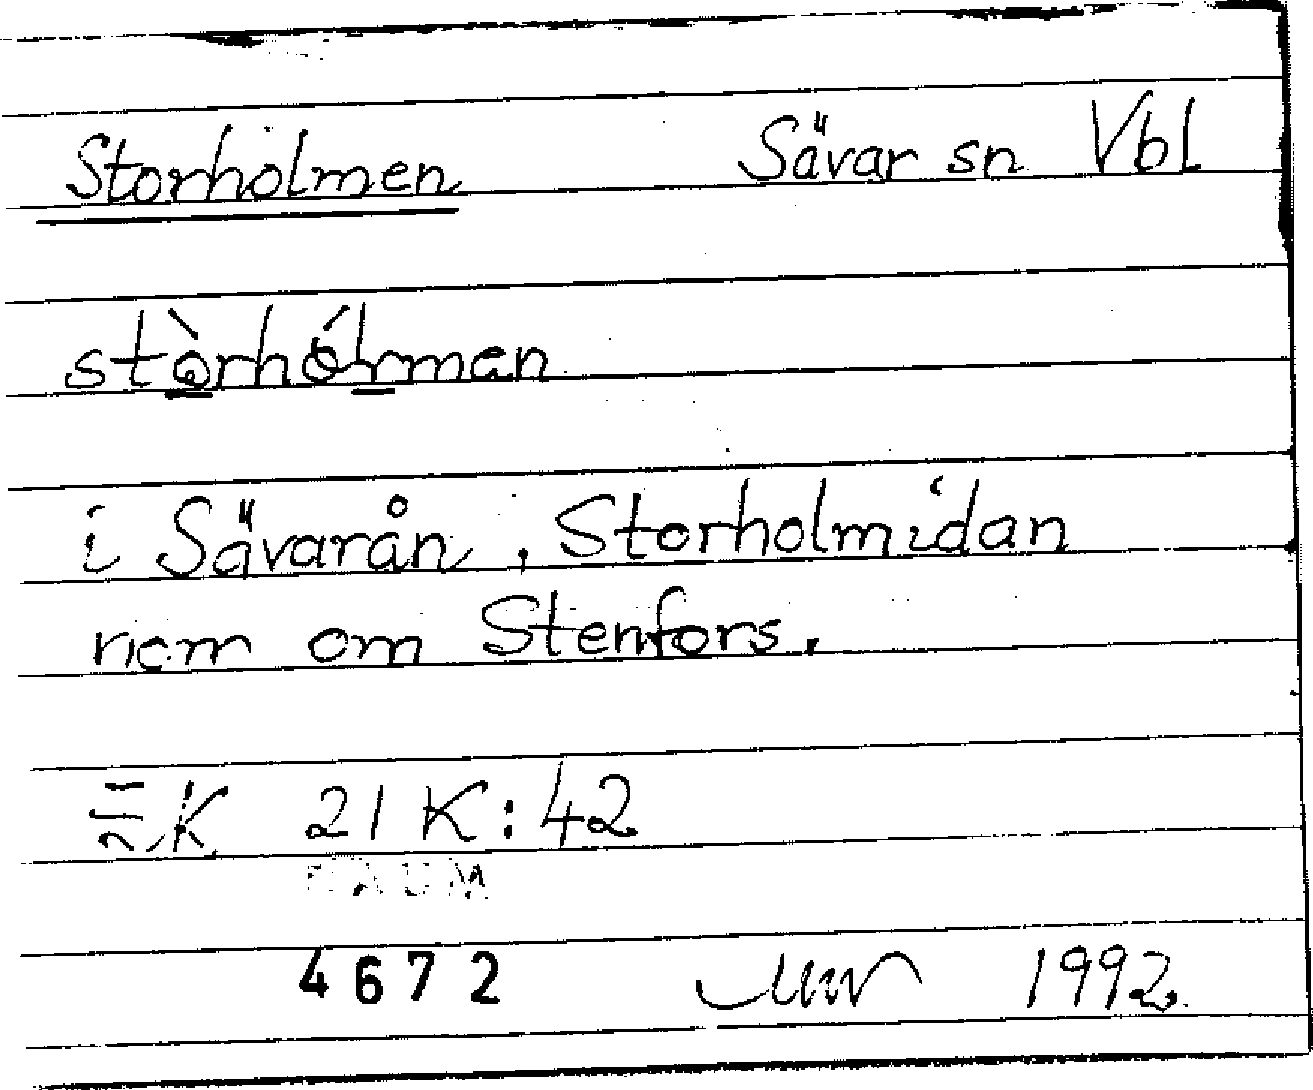 Storholmen Sävar sn Vbl
stòrhólmen
i Sävarån, Storholmidan
nom om Stenfors.
EK 21 K:42
DAUM
4672 1992